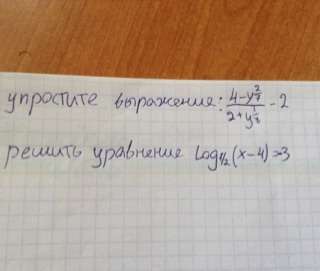 упростите выражение: (4-y^(2/7))/(2+y^(1/7)) - 2
решить уравнение Log₁/₂(x-4)=3